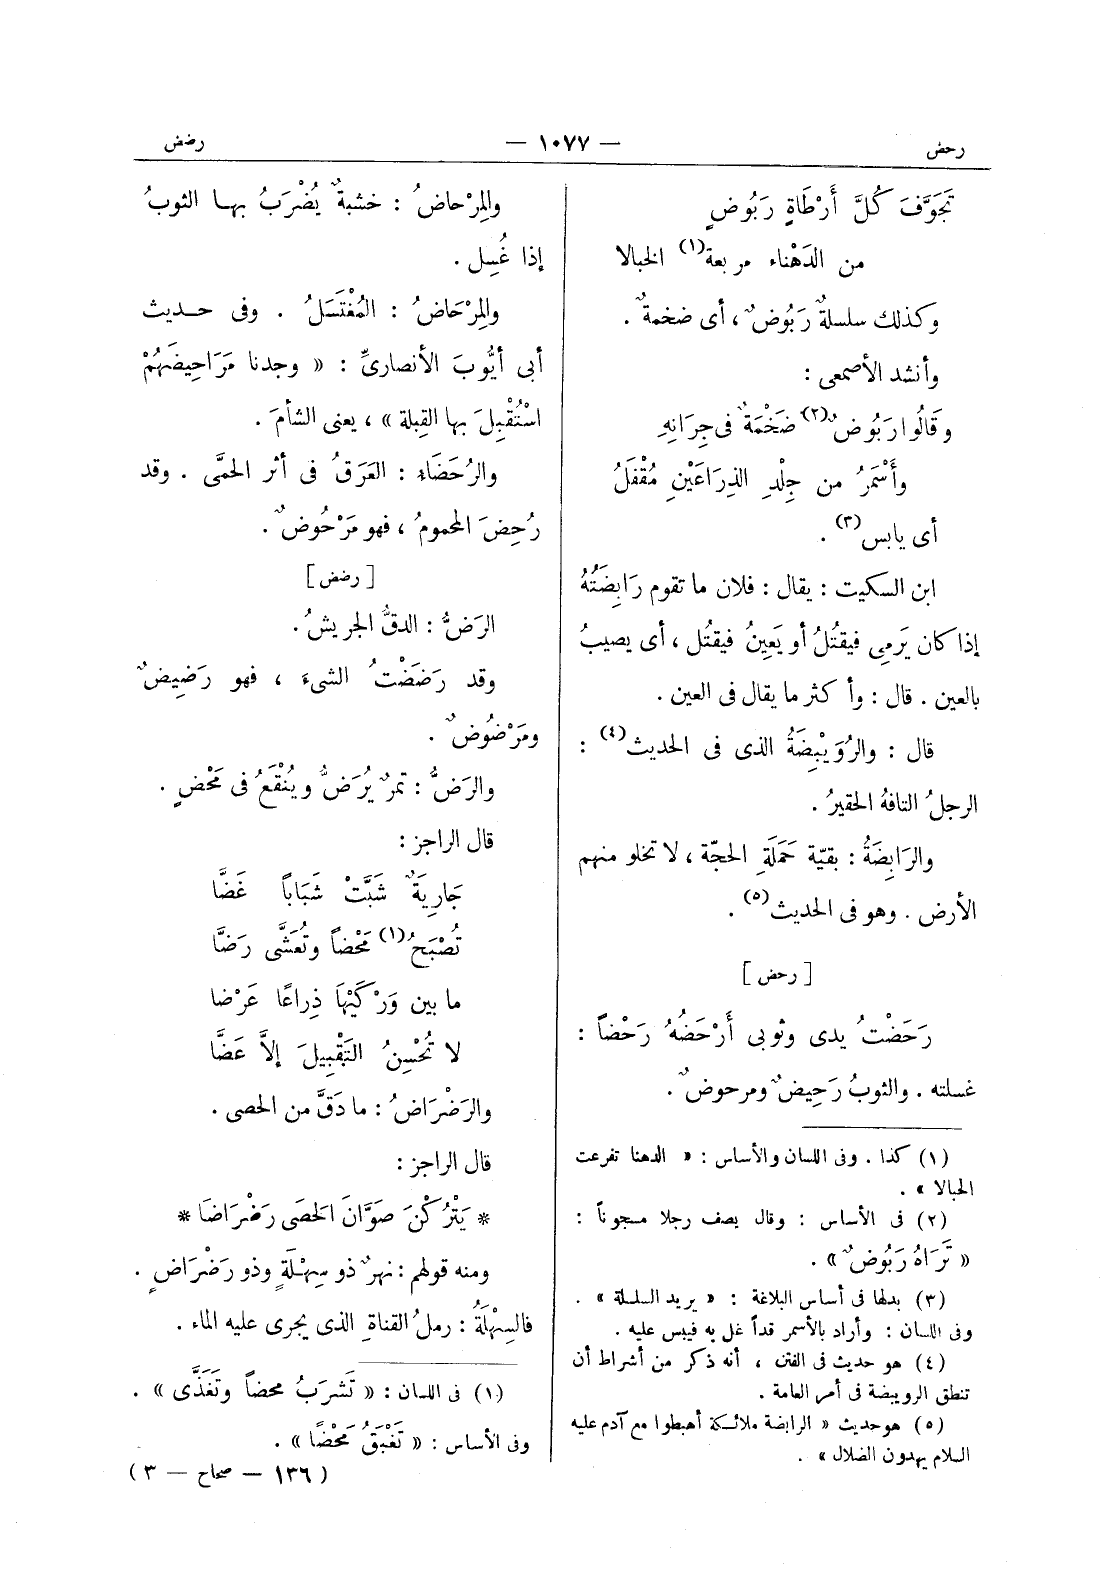 رحض
— ١٠٧٧ —
رضض
تَجَوَّفَ كُلَّ أَرْطَاةٍ رَبُوضٍ
من الدَهْناء مربعة(١) الخبالا
وكذلك سلسلةٌ رَبُوضٌ، أى ضخمةٌ.
وأنشد الأصمعى:
وَقَالُوا رَبُوضٌ(٢) ضَخْمَةٌ فى جِرَانِهِ
وأَسْمَرُ من جِلْدِ الذِرَاعَيْنِ مُقْفَلُ
أى يابس(٣).
ابن السكيت: يقال: فلان ما تقوم رَابِضَتُهُ
إذا كان يَرمِى فيقتُلُ أو يَعِينُ فيقتُل، أى يصيبُ
بالعين. قال: وأكثر ما يقال فى العين.
قال: والرُوَيْبِضَةُ الذى فى الحديث(٤):
الرجلُ التافهُ الحقيرُ.
والرَابِضَةُ: بقيّة حَمَلَةِ الحجّة، لا تخلو منهم
الأرض. وهو فى الحديث(٥).
[ رحض ]
رَحَضْتُ يدى وثوبى أَرْحَضُهُ رَحْضاً:
غسلته. والثوبُ رَحِيضٌ ومرحوضٌ.
(١) كذا. وفى اللسان والأساس: « الدهنا تفرعت
الحبالا ».
(٢) فى الأساس: وقال يصف رجلا مسجوناً:
« تَرَاهُ رَبُوضٌ ».
(٣) بدلها فى أساس البلاغة: « يريد السلسلة ».
وفى اللسان: وأراد بالأسمر قداً غل به فيبس عليه.
(٤) هو حديث فى الفتن، أنه ذكر من أشراط أن
تنطق الرويبضة فى أمر العامة.
(٥) هو حديث « الرابضة ملائكة أهبطوا مع آدم عليه
السلام يهدون الضلال ».
والمِرْحاضُ: خشبةٌ يُضْرَبُ بها الثوبُ
إذا غُسِل.
والمِرْحَاضُ: المُغْتَسَلُ. وفى حديث
أبى أيُّوبَ الأنصارىِّ: « وجدنا مَرَاحِيضَهُمْ
اسْتُقْبِلَ بها القِبلة »، يعنى الشأمَ.
والرُحَضَاءِ: العَرَقُ فى أثر الحمَّى. وقد
رُحِضَ المحمومُ، فهو مَرْحُوضٌ.
[ رضض ]
الرَضُّ: الدقُّ الجريشُ.
وقد رَضَضْتُ الشىءَ، فهو رَضِيضٌ
ومَرْضُوضٌ.
والرَضُّ: تمرٌ يُرَضُّ ويُنْقَعُ فى مَحْضٍ.
قال الراجز:
جَارِيَةٌ شَبَّتْ شَبَاباً غَضَّا
تُصْبَحُ(١) مَحْضاً وتُعَشَّى رَضَّا
ما بين وَرْكَيْهَا ذِراعًا عَرْضا
لا تُحْسِنُ التَقْبِيلَ إلاَّ عَضَّا
والرَضْرَاضُ: ما دَقَّ من الحصى.
قال الراجز:
* يَتْرُكْنَ صَوَّانَ الحَصَى رَضْرَاضَا *
ومنه قولهم: نهرٌ ذو سِهْلَةٍ وذو رَضْرَاضٍ.
فالسِهْلَةُ: رملُ القناةِ الذى يجرى عليه الماء.
(١) فى اللسان: « تَشرَبُ محضاً وتَغَذَّى ».
وفى الأساس: « تَغْبَقُ مَحْضًا ».
( ١٣٦ — صحاح — ٣ )